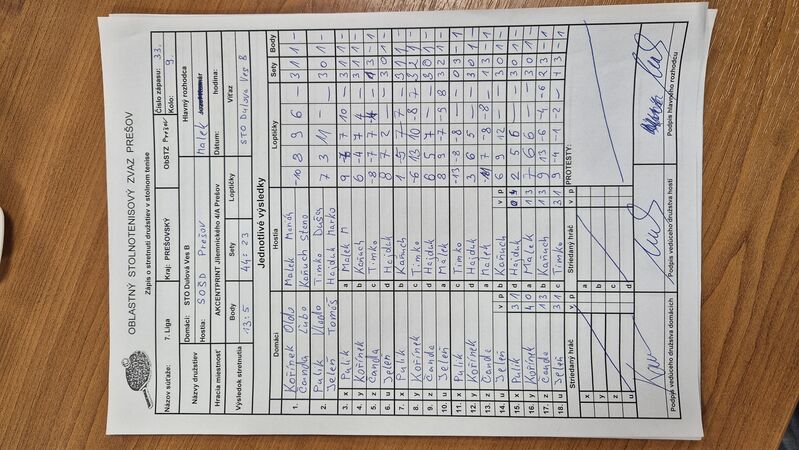 OBLASTNÝ STOLNOTENISOVÝ ZVAZ PREŠOV
Zápis o stretnutí družstiev v stolnom tenise
Názov súťaže: 7. Liga Kraj: PREŠOVSKÝ ObSTZ Prešov Číslo zápasu: 33. Kolo: 9.
Názvy družstiev Domáci: STO Dulová Ves B Hlavný rozhodca
Hostia: SOŠD Prešov Malek
Hracia miestnosť AKCENTPRINT Jilemnického 4/A Prešov Dátum: hodina:
Výsledok stretnutia Body Sety Loptičky Víťaz
13:5 44:23 STO Dulova Ves B
Jednotlivé výsledky
Domáci Hostia Loptičky Sety Body
1. Kořínek Oldo Malek Maroš -10 8 9 6 - 3 1 1 -
Čanda Ľubo Kaňuch Steno
2. Pulik Vlado Timko Dušan 7 3 11 - - 3 0 1 -
Jeleň Tomáš Hajduk Marko
3. x Pulik a Malek M
4. y Kořínek b Kaňuch 6 -4 7 4 - 3 1 1 -
5. z Čanda c Timko
6. u Jeleň d Hajduk 8 7 2 - - 3 0 1 -
7. x Pulik b Kaňuch
8. y Kořínek c Timko -6 13 10 -8 7 3 2 1 -
9. z Čanda d Hajduk 6 5 7 - - 3 0 1 -
10. u Jeleň a Malek 8 9 -7 -9 8 3 2 1 -
11. x Pulik c Timko -13 -8 -8 - - 0 3 - 1
12. y Kořínek d Hajduk 3 6 5 - - 3 0 1 -
13. z Čanda a Malek
14. u Jeleň b Kaňuch 6 9 12 - - 3 0 1 -
v p v p
15. x Pulik 3 1 d Hajduk 2 5 6 - - 3 0 1 -
16. y Kořínek 4 0 a Malek 1 3 7 6 6 - - 3 0 1 -
17. z Čanda 1 3 b Kaňuch 1 3 9 13 -6 -4 -6 2 3 - 1
18. u Jeleň 3 1 c Timko 3 1 9 -4 -1 -2 - 1 3 - 1
Striedaný hráč v p Striedaný hráč v p PROTESTY:
x a
y b
z c
u d
Podpis vedúceho družstva domácich Podpis vedúceho družstva hostí Podpis hlavného rozhodcu